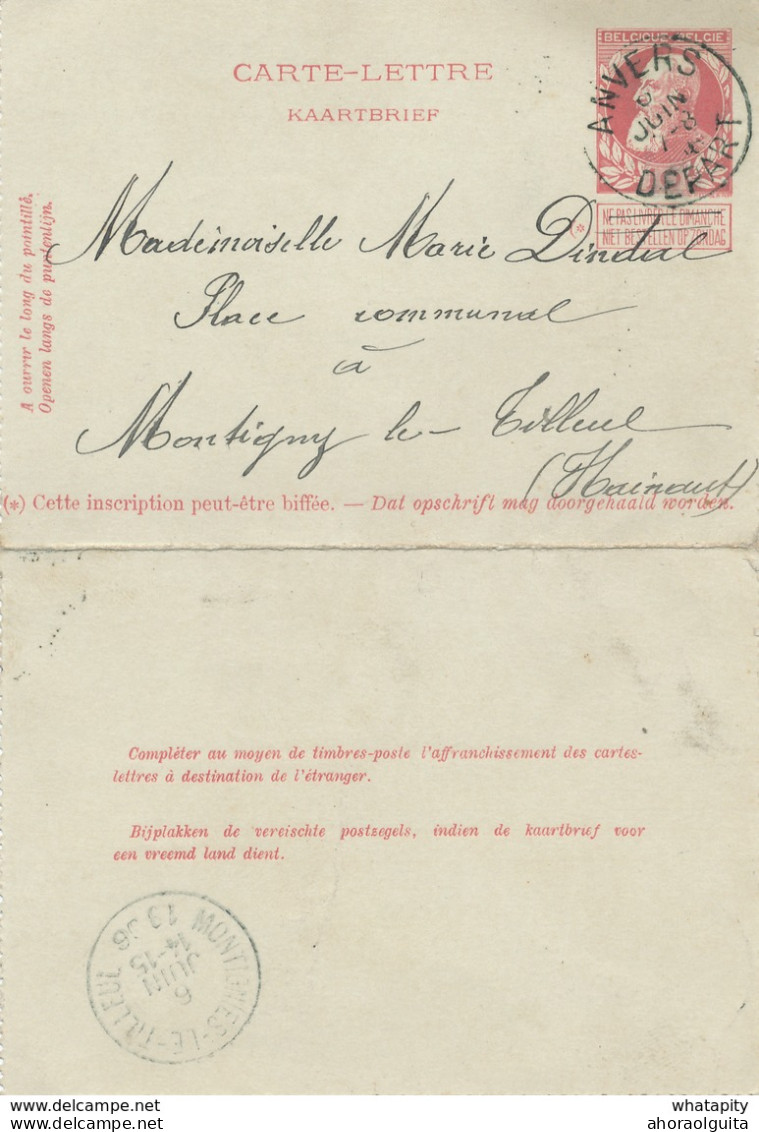 BELGIQUE BELGIE
CARTE-LETTRE
KAARTBRIEF
ANVERS
6
JUIN
7-8
DEPART
(*
NE PAS LIVRER LE DIMANCHE
NIET BESTELLEN OP ZONDAG
A ouvrir le long du pointillé.
Openen langs de puntenlijn.
Mademoiselle Marie
Place communal
à
Montigny le-Tilleul
(Hainaut)
(*) Cette inscription peut-être biffée. — Dat opschrift mag doorgehaald worden.
Compléter au moyen de timbres-poste l'affranchissement des cartes-
lettres à destination de l'étranger.
Bijplakken de vereischte postzegels, indien de kaartbrief voor
een vreemd land dient.
MONTIGNIES-LE-TILLEUL
6
JUIN
14-15
19 06
whatapity
ahoraolguita